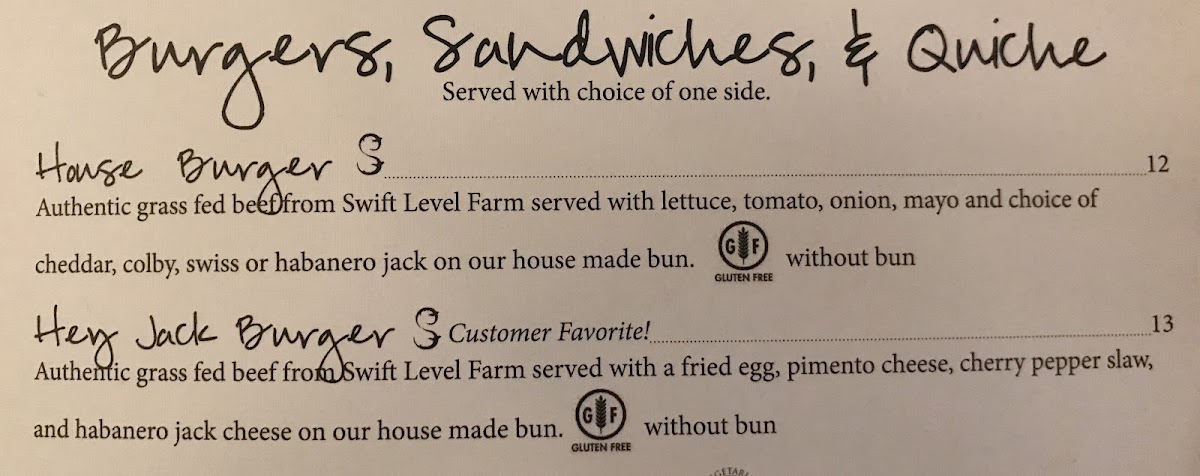 Burgers, Sandwiches, & Quiche
Served with choice of one side.
House Burger S 12
Authentic grass fed beef from Swift Level Farm served with lettuce, tomato, onion, mayo and choice of
cheddar, colby, swiss or habanero jack on our house made bun. GF GLUTEN FREE without bun
Hey Jack Burger S Customer Favorite! 13
Authentic grass fed beef from Swift Level Farm served with a fried egg, pimento cheese, cherry pepper slaw,
and habanero jack cheese on our house made bun. GF GLUTEN FREE without bun